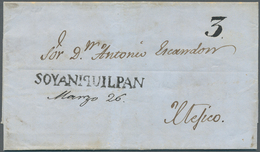 3
Sor. Dn. Antonio Escandon
SOYANIQUILPAN
Marzo 26.
Mejico.